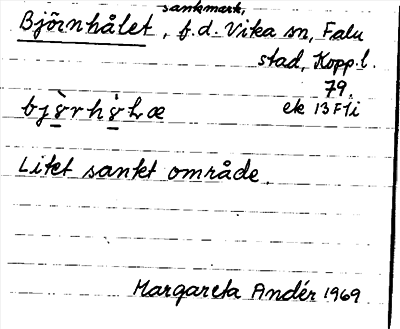 sankmark,
Björnhålet, f.d. Vika sn, Falu
stad, Kopp.l.
79.
ek 13F1i
Litet sankt område.
Margareta Andér 1969